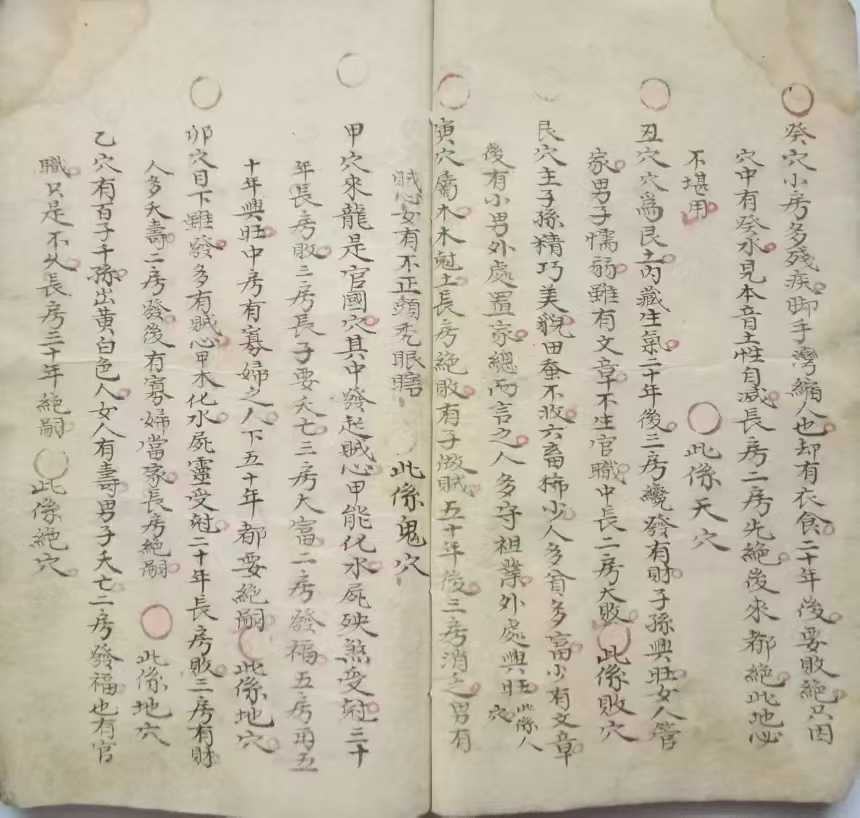 癸穴小房多残疾脚手灣縮人也却有衣食二十年後要敗絶只因
穴中有癸水見本音土性自减長房二房先絶後來都絶此地必
不堪用 此係天穴
丑穴穴爲艮土內藏生氣二十年後三房纔發有財子孫興旺女人管
家男子懦弱雖有文章不生官職中長二房大敗 此係敗穴
艮穴主子孫精巧美貌田蚕不收六畜稀少人多貧多富少有文章
後有小男外處置家總而言之人多守祖業外處興旺 此係人穴
寅穴屬木木尅土長房絶敗有子做賊五十年後三房消乏男有
賊心女有不正頭秃眼瞎 此係鬼穴
甲穴來龍是官國穴其中發起賊心甲能化水屍殃煞受尅三十
年長房敗三房長子要夭亡三房大富二房發福五房用五
十年興旺中房有寡婦之人下五十年都要絶嗣 此係地穴
卯穴目下雖發多有賊心甲木化水屍靈受尅二十年長房敗三房有財
人多夭壽二房發後有寡婦當家長房絶嗣 此係地穴
乙穴有百子千孫出黄白色人女人有壽男子夭亡二房發福也有官
職只是不久長房三十年絶嗣 此係絶穴